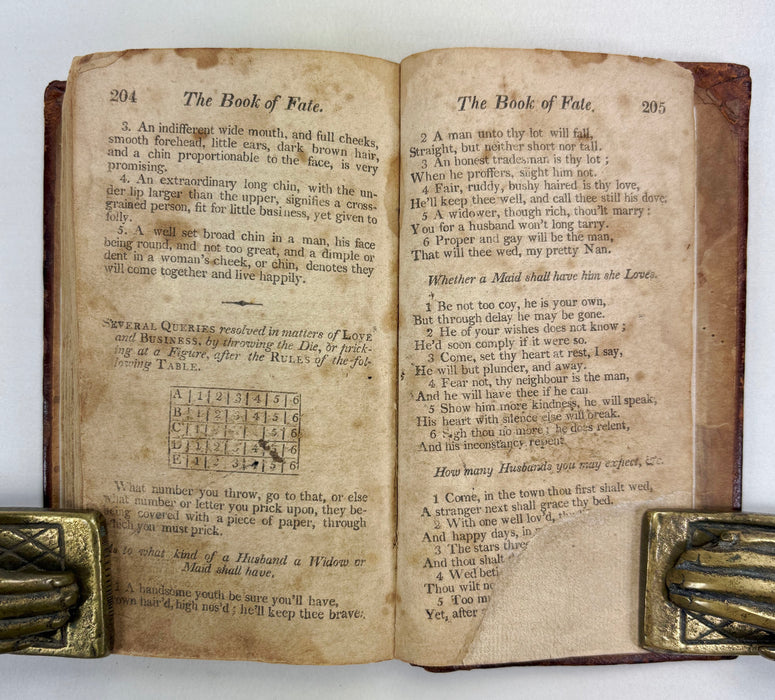 204 The Book of Fate.
3. An indifferent wide mouth, and full cheeks,
smooth forehead, little ears, dark brown hair,
and a chin proportionable to the face, is very
promising.
4. An extraordinary long chin, with the un-
der lip larger than the upper, signifies a cross-
grained person, fit for little business, yet given to
folly.
5. A well set broad chin in a man, his face
being round, and not too great, and a dimple or
dent in a woman's cheek, or chin, denotes they
will come together and live happily.
SEVERAL QUERIES resolved in matters of LOVE
and BUSINESS, by throwing the Die, or prick-
ing at a Figure, after the RULES of the fol-
lowing TABLE.
A | 1 | 2 | 3 | 4 | 5 | 6
B | 1 | 2 | 3 | 4 | 5 | 6
C | 1 | 2 | 3 | 4 | 5 | 6
D | 1 | 2 | 3 | 5 | 6
E | 1 | 2 | 3 | 5 | 6
What number you throw, go to that, or else
what number or letter you prick upon, they be-
ing covered with a piece of paper, through
which you must prick.
As to what kind of a Husband a Widow or
Maid shall have,
1 A handsome youth be sure you'll have,
Brown hair'd, high nos'd; he'll keep thee brave.
The Book of Fate. 205
2 A man unto thy lot will fall,
Straight, but neither short nor tall.
3 An honest tradesman is thy lot;
When he proffers, slight him not.
4 Fair, ruddy, bushy haired is thy love,
He'll keep thee well, and call thee still his dove.
5 A widower, though rich, thou'lt marry:
You for a husband won't long tarry.
6 Proper and gay will be the man,
That will thee wed, my pretty Nan.
Whether a Maid shall have him she Loves.
1 Be not too coy, he is your own,
But through delay he may be gone.
2 He of your wishes does not know;
He'd soon comply if it were so.
3 Come, set thy heart at rest, I say,
He will but plunder, and away.
4 Fear not, thy neighbour is the man,
And he will have thee if he can
5 Show him more kindness, he will speak,
His heart with silence else will break.
6 Sigh thou no more; he does relent,
And his inconstancy repent.
How many Husbands you may expect, &c.
1 Come, in the town thou first shalt wed,
A stranger next shall grace thy bed.
2 With one well lov'd, th
And happy days, in
3 The stars three
And thou shalt
4 Wed
Thou wilt
5 Too
Yet, after